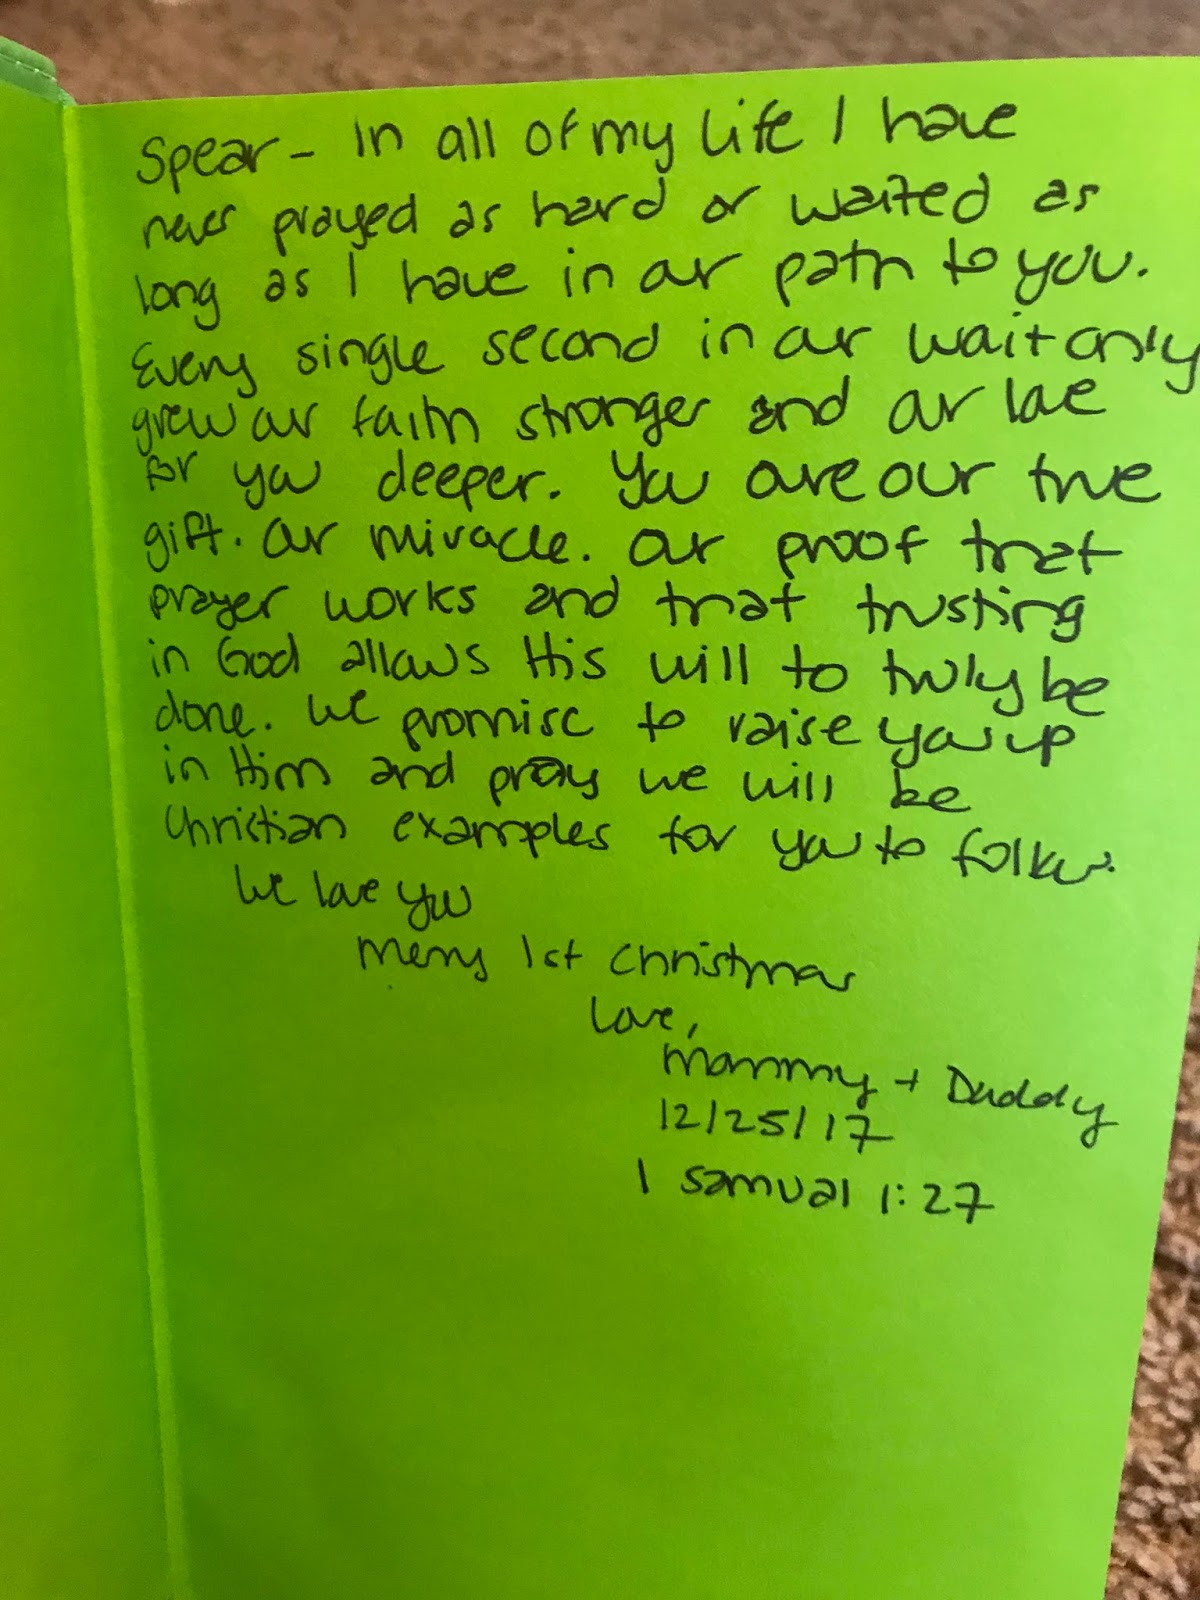 Spear - In all of my life I have
never prayed as hard or waited as
long as I have in our path to you.
Every single second in our wait only
grew our faith stronger and our love
for you deeper. You are our true
gift. Our miracle. Our proof that
prayer works and that trusting
in God allows His will to truly be
done. We promise to raise you up
in Him and pray we will be
Christian examples for you to follow.
We love you
Merry 1st Christmas
Love,
Mommy + Daddy
12/25/17
1 Samual 1:27